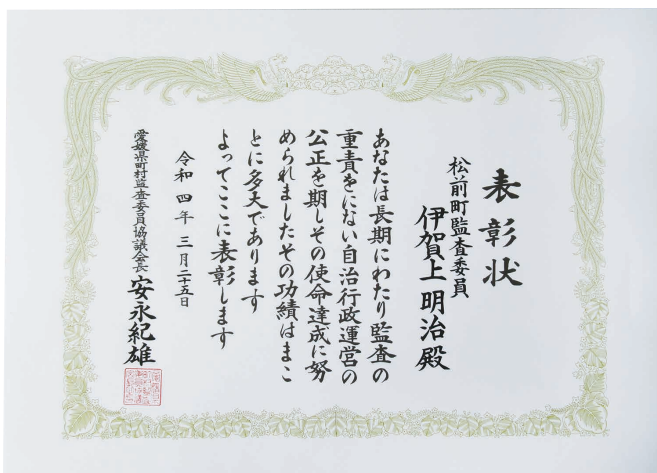 表彰状
松前町監査委員
伊賀上明治殿
あなたは長期にわたり監査の
重責をにない自治行政運営の
公正を期しその使命達成に努
められましたその功績はまこ
とに多大であります
よってここに表彰します
令和四年三月二十五日
愛媛県町村監査委員協議会長 安永紀雄